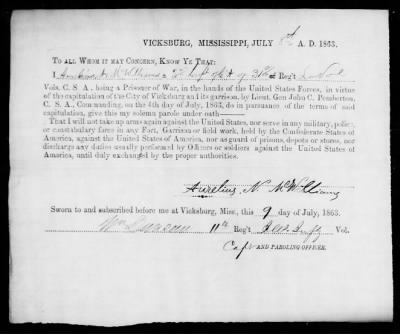 VICKSBURG, MISSISSIPPI, JULY 8th A. D. 1863.
TO ALL WHOM IT MAY CONCERN, KNOW YE THAT:
I Aurelius N McWilliams a of Co H 31st Reg't
Vols. C. S. A., being a Prisoner of War, in the hands of the United States Forces, in virtue
of the capitulation of the City of Vicksburg and its garrison, by Lieut. Gen. John C. Pemberton,
C. S. A., Commanding, on the 4th day of July, 1863, do in pursuance of the terms of said
capitulation, give this my solemn parole under oath——
That I will not take up arms again against the United States, nor serve in any military, police,
or constabulary force in any Fort, Garrison or field work, held by the Confederate States of
America, against the United States of America, nor as guard of prisons, depots or stores, nor
discharge any duties usually performed by Officers or soldiers against the United States of
America, until duly exchanged by the proper authorities.
Aurelius N. McWilliams
Sworn to and subscribed before me at Vicksburg, Miss., this 9 day of July, 1863.
Wm 11th Reg't Vol.
Capt AND PAROLING OFFICER.